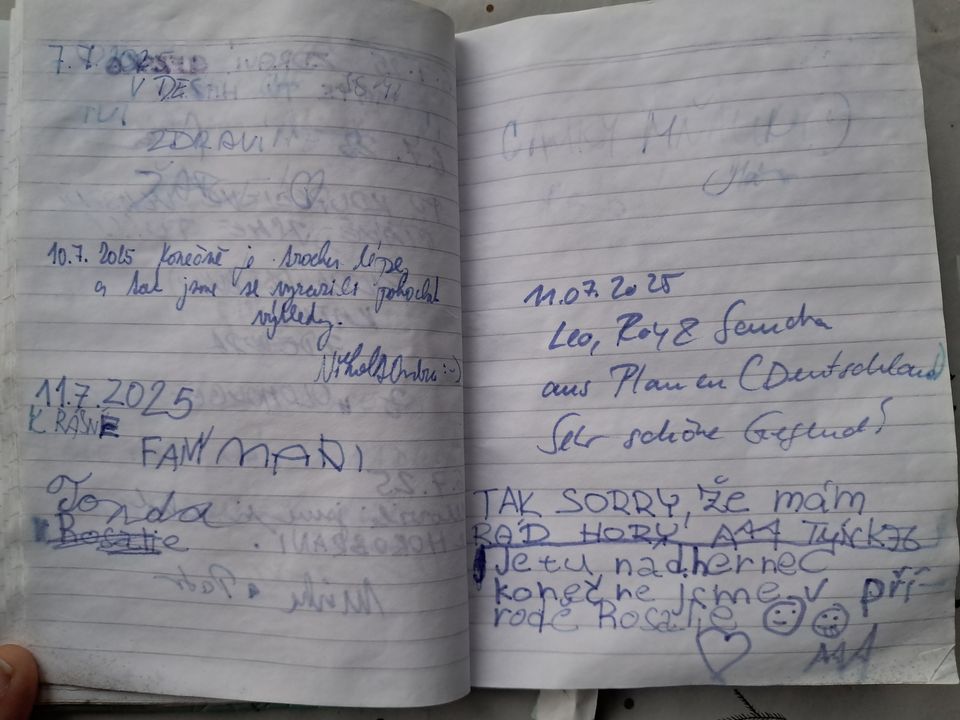 7.7.2025
V DEŠTI
ZDRAVÍ
10.7. 2025 Konečně je trochu lépe,
a tak jsme se vyrazili pokochat
výhledy.
11.7.2025
KRÁSNĚ
FAM MADI
Tonda
Rosalie
11.07.2025
Leo, Roy & Sandra
aus Plauen (Deutschland)
Sehr schöne Gegend!
TAK SORRY, že mám
RÁD HORY AAA
Je tu nádherně C
konečne jsme v pří-
rodě Rosalie
AAA